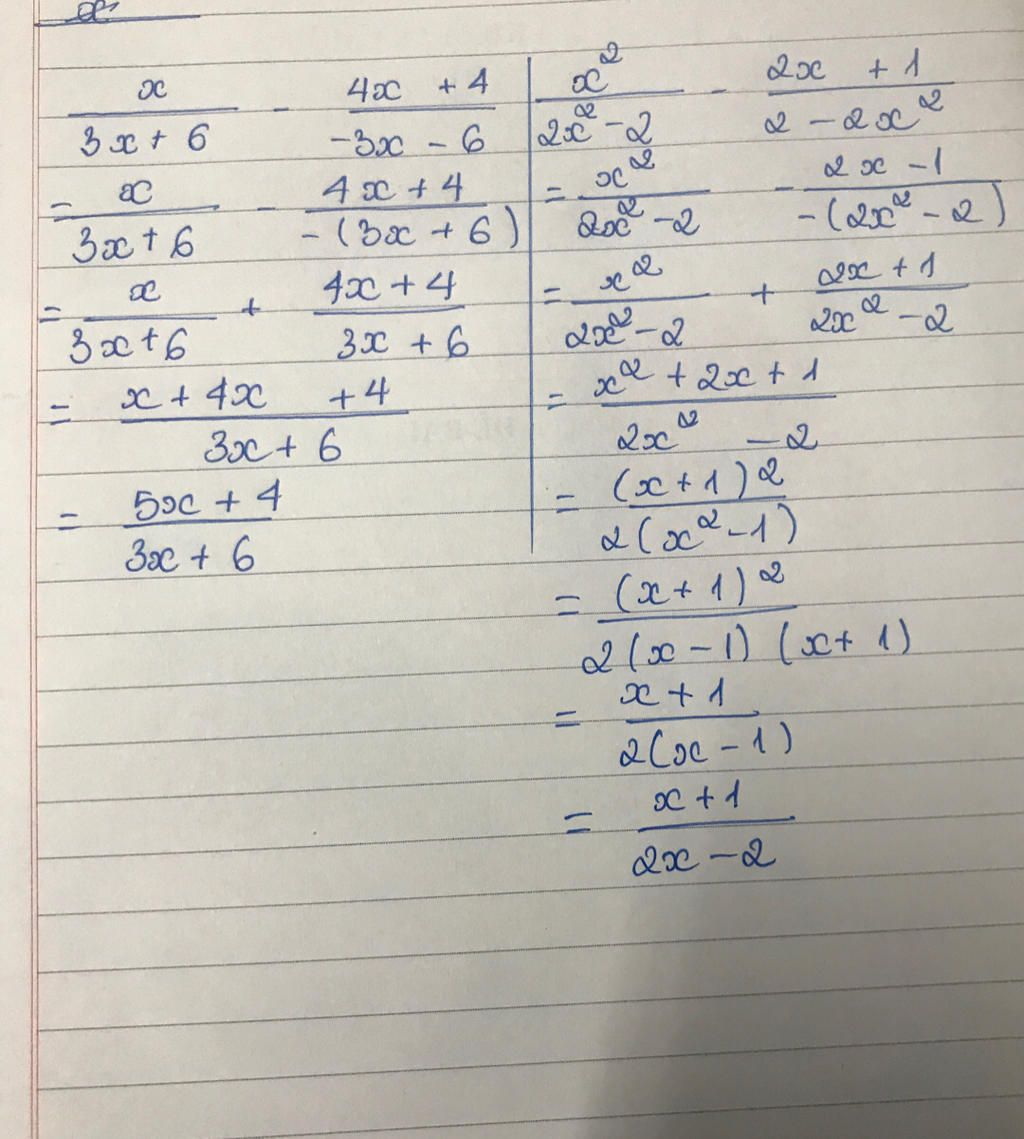 x/(3x + 6) - (4x + 4)/(-3x - 6)
= x/(3x + 6) - (4x + 4)/(-(3x + 6))
= x/(3x + 6) + (4x + 4)/(3x + 6)
= (x + 4x + 4)/(3x + 6)
= (5x + 4)/(3x + 6)
x²/(2x² - 2) - (2x + 1)/(2 - 2x²)
= x²/(2x² - 2) - (2x - 1)/(-(2x² - 2))
= x²/(2x² - 2) + (2x + 1)/(2x² - 2)
= (x² + 2x + 1)/(2x² - 2)
= (x + 1)²/(2(x² - 1))
= (x + 1)²/(2(x - 1)(x + 1))
= (x + 1)/(2(x - 1))
= (x + 1)/(2x - 2)